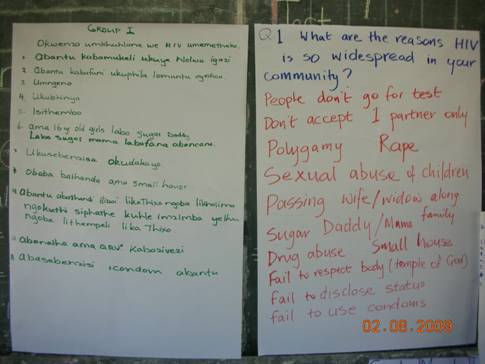 GROUP 1
Okwenza umkhuhlane we HIV umemetheke.
1 Abantu kabamukeli ukuya Nolwa igazi
2 Abantu kabafuni ukuphila lomuntu oyedwa.
3 Umngeno
4 Ukubhinya
5 Isithembo
6 ama 16 yr old girls labo Sugar Daddy
Labo Sugar mama labafana abancane.
7 Ukusebenzisa okudakayo
8 Obaba bathanda ama small house
ngokuthi siphathe kuhle imzimba yethu
ngoba lithempeli lika Thixo
icondom abantu
Q1 What are the reasons HIV
is so widespread in your
community?
People don't go for test
Don't accept 1 partner only
Polygamy Rape
Sexual abuse of children
Passing wife/widow along
family
Sugar Daddy/Mama
Drug abuse Small house
Fail to respect body (temple of God)
Fail to disclose status
Fail to use condoms
02.08.2009